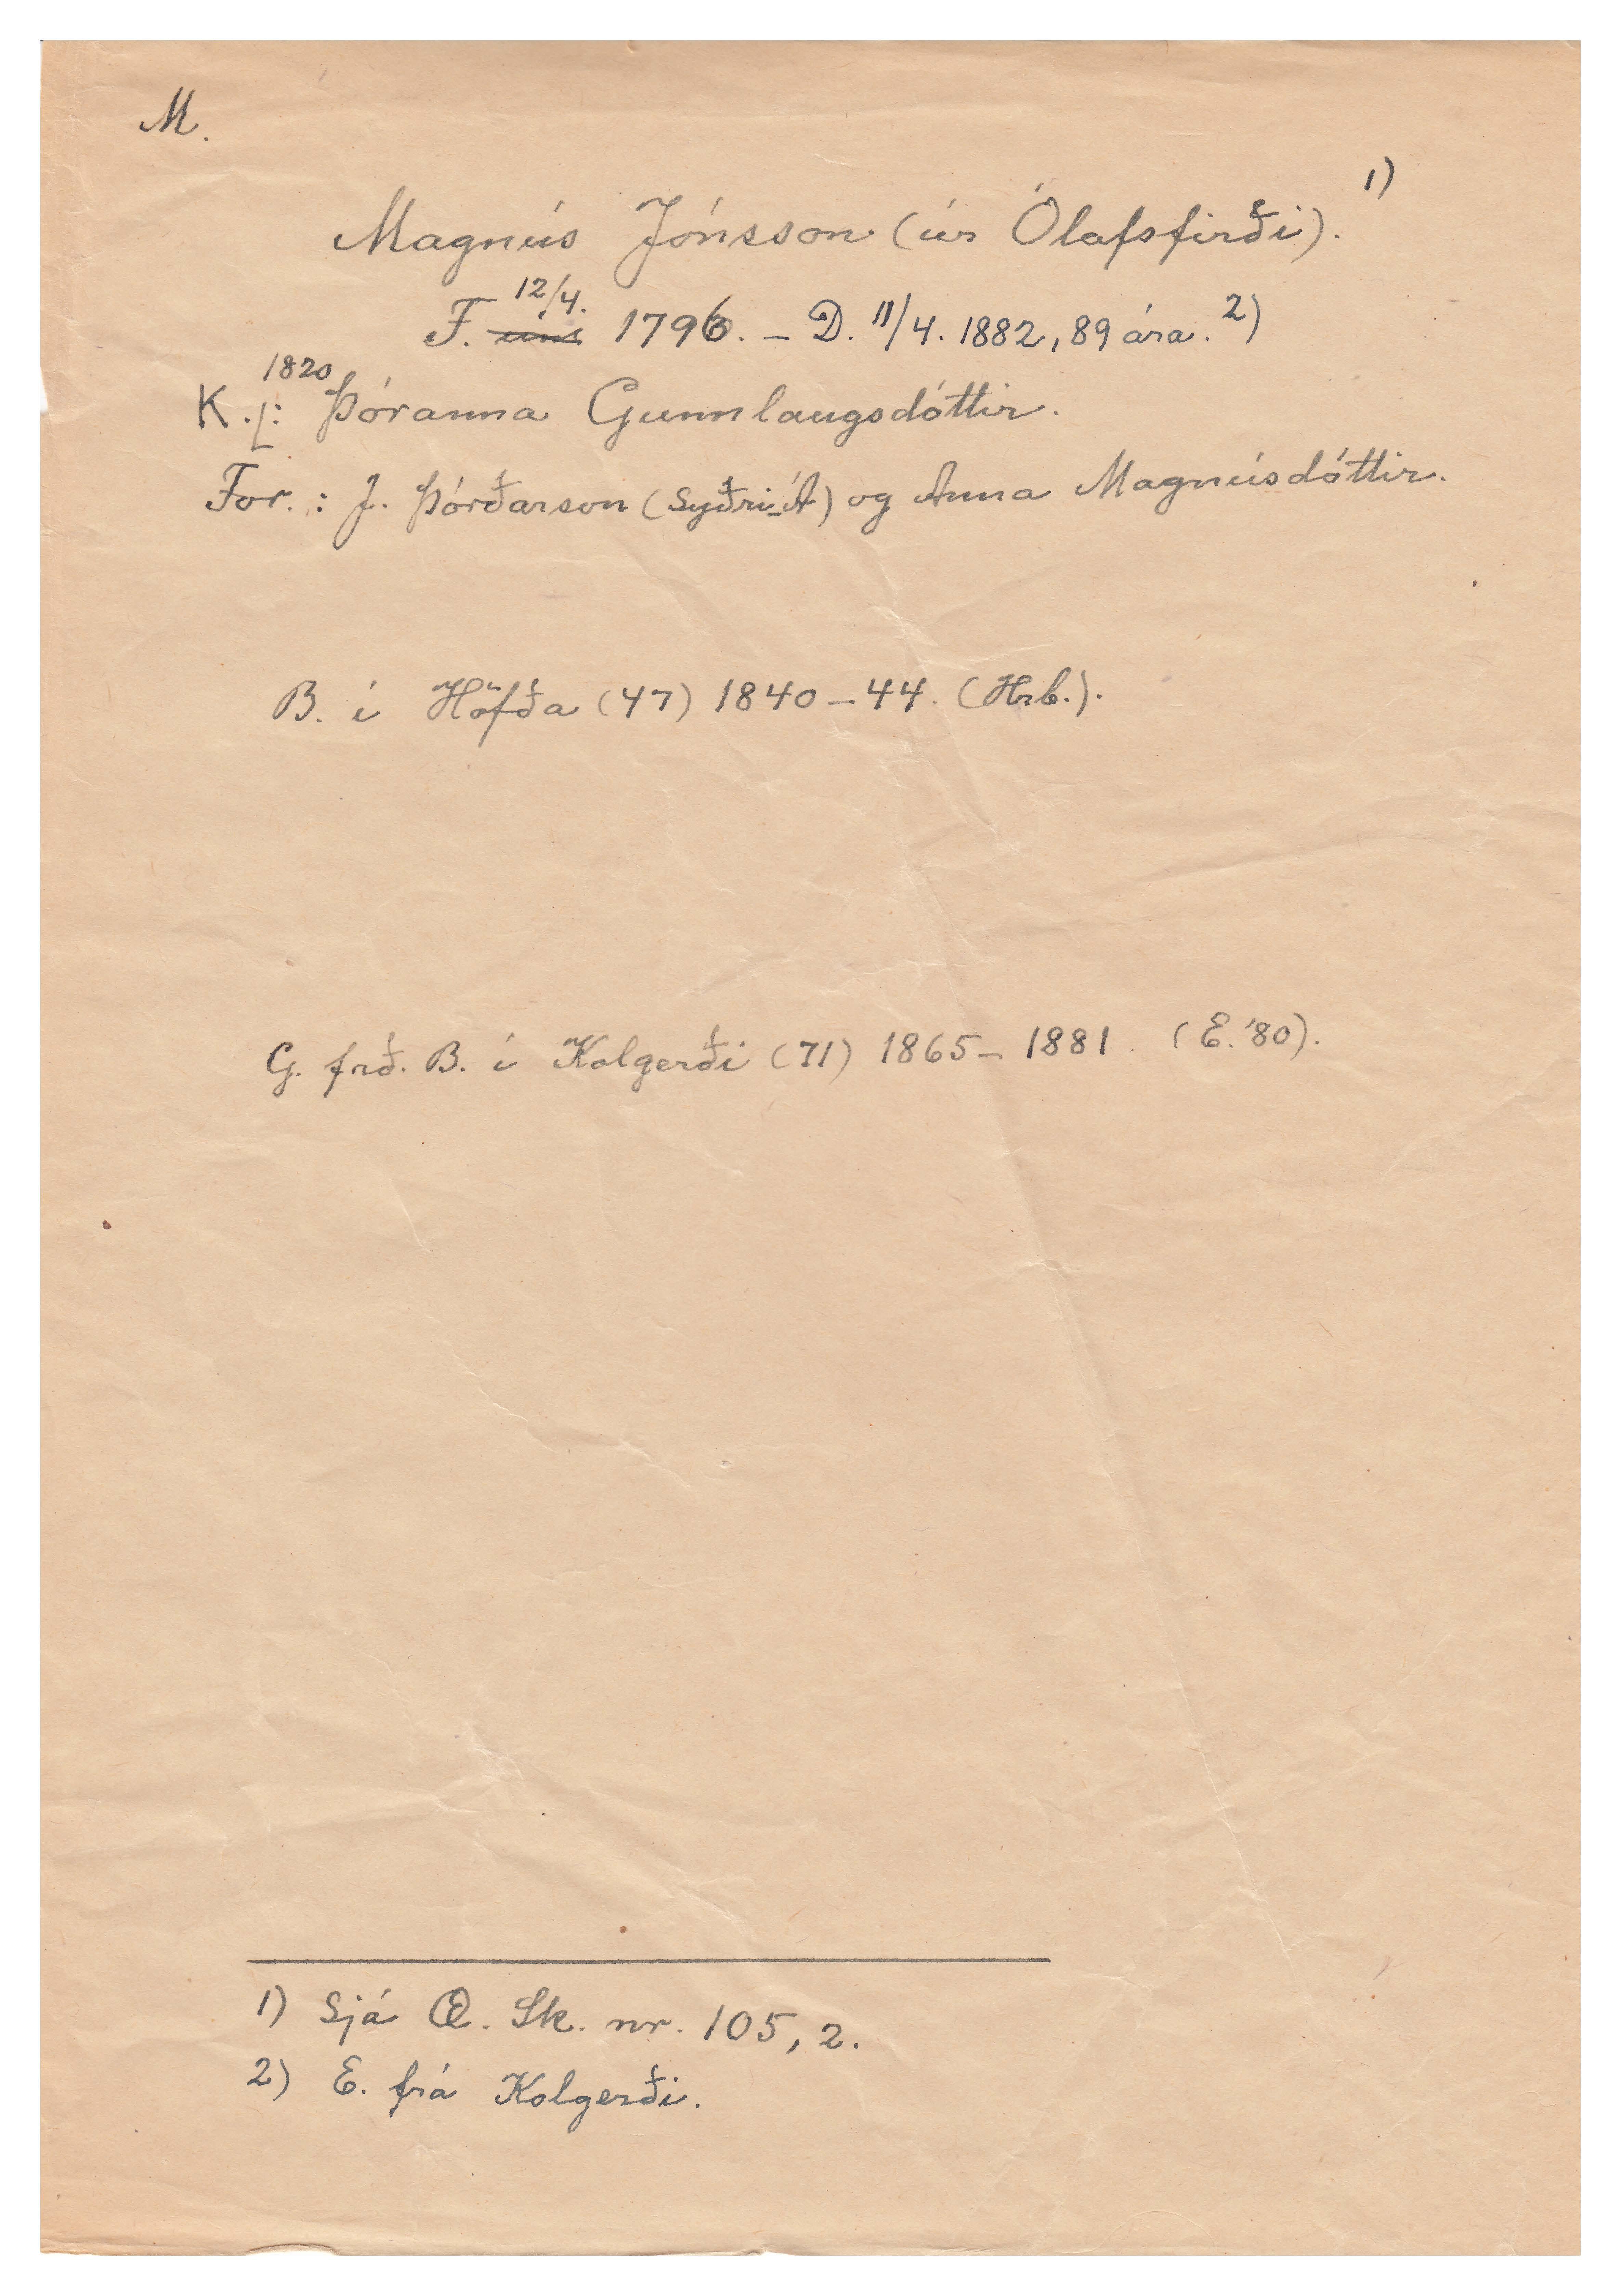 M.
Magnús Jónsson (úr Ólafsfirði). 1)
F. 12/4. 1796. – D. 11/4. 1882, 89 ára. 2)
1820
K.: Þóranna Gunnlaugsdóttir.
For.: J. Þórðarson (Syðri-Á) og Anna Magnúsdóttir.
B. í Höfða (47) 1840–44. (Hrb.).
G. frð. B. í Kolgerði (71) 1865–1881. (E. '80).
1) Sjá Œ. Sk. nr. 105, 2.
2) E. frá Kolgerði.